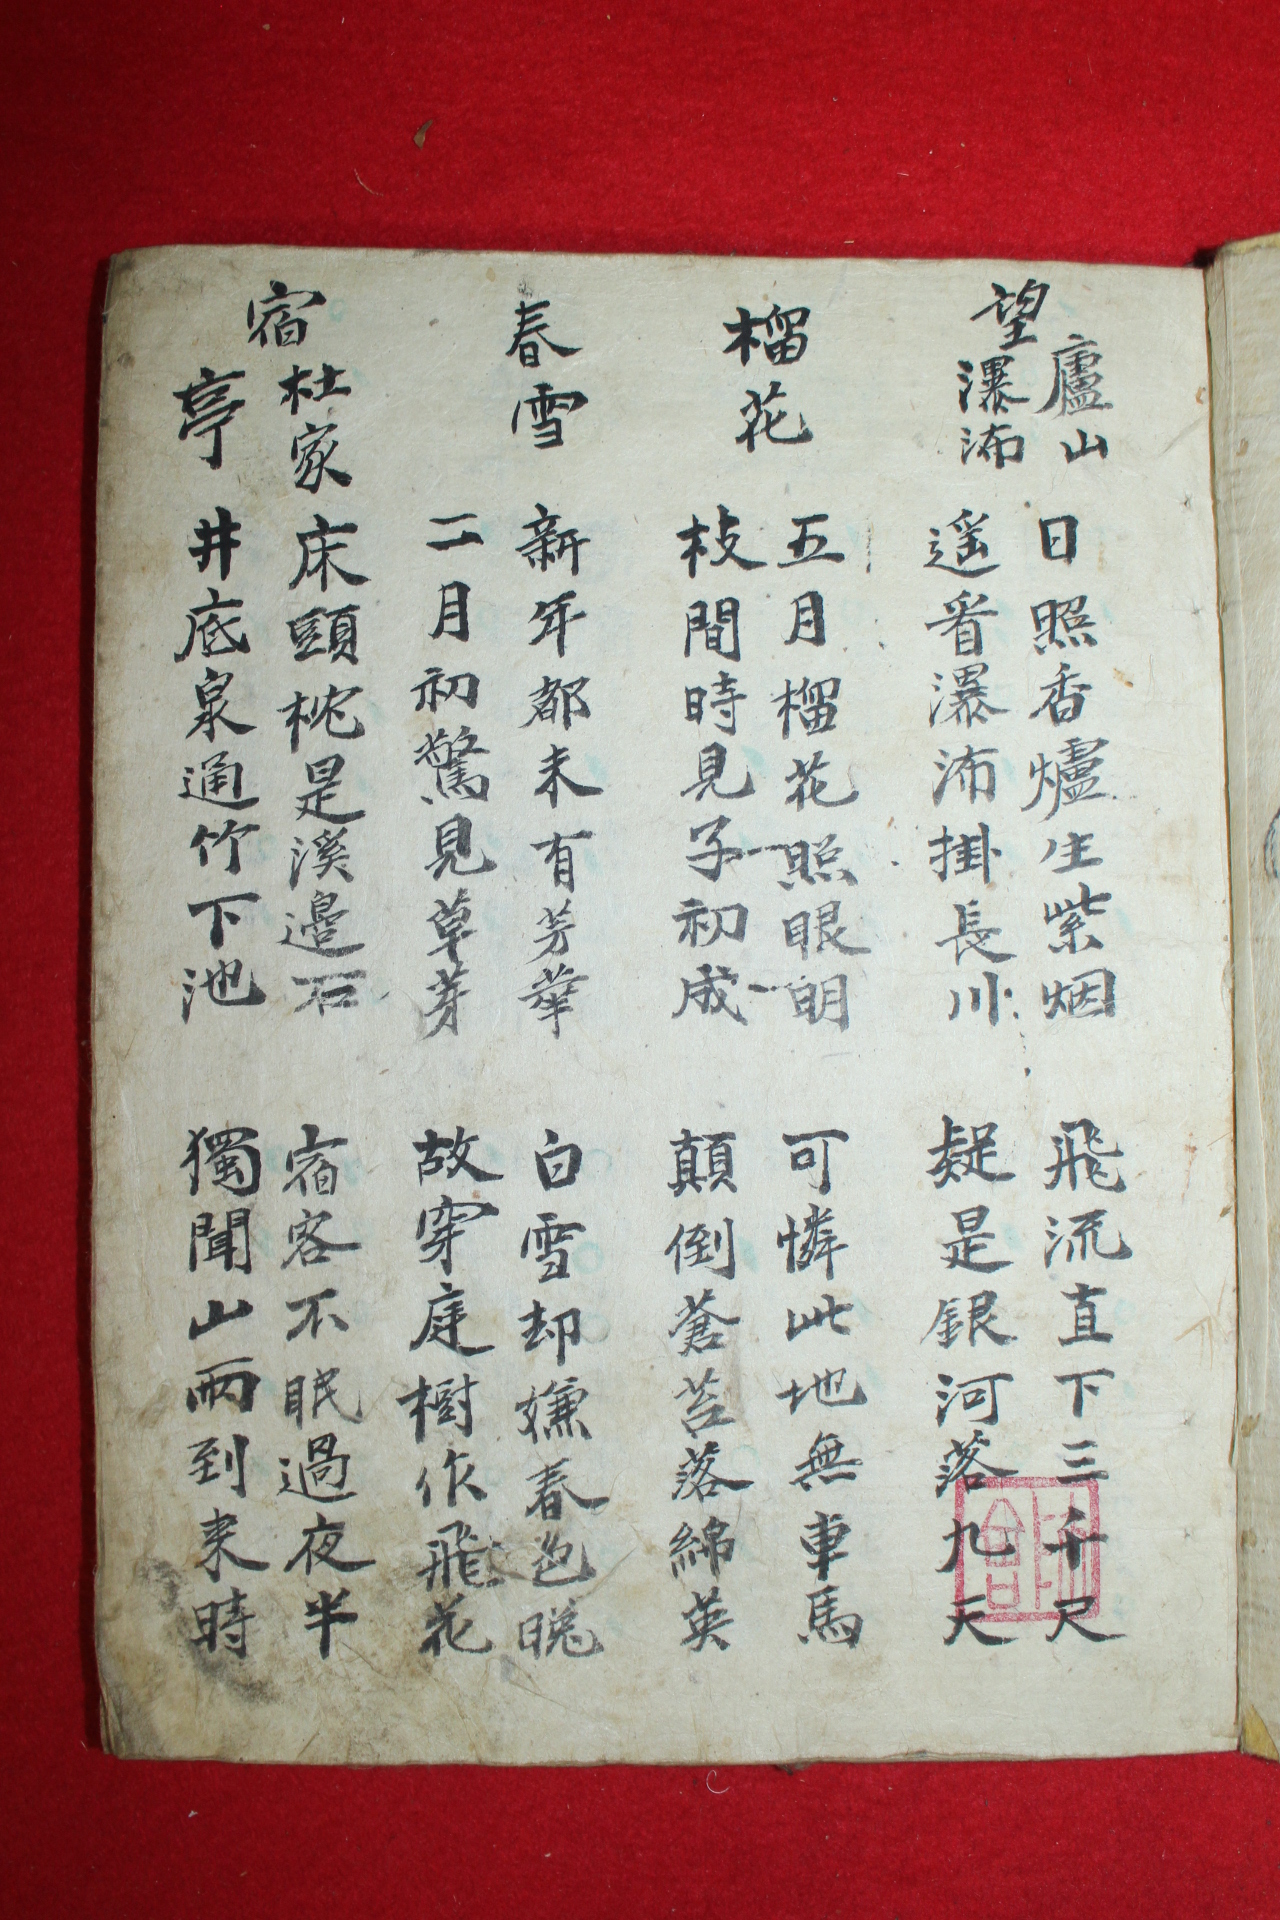 望廬山瀑㳍
日照香爐生紫烟 飛流直下三千尺
遥看瀑㳍掛長川 疑是銀河落九天
榴花
五月榴花照眼明 可憐此地無車馬
枝間時見子初成 顛倒蒼苔落綿英
春雪
新年都未有芳華 白雪却嫌春色晩
二月初驚見草芽 故穿庭樹作飛花
宿杜家亭
床頭枕是溪邉石 宿客不眠過夜半
井底泉通竹下池 獨聞山雨到来時